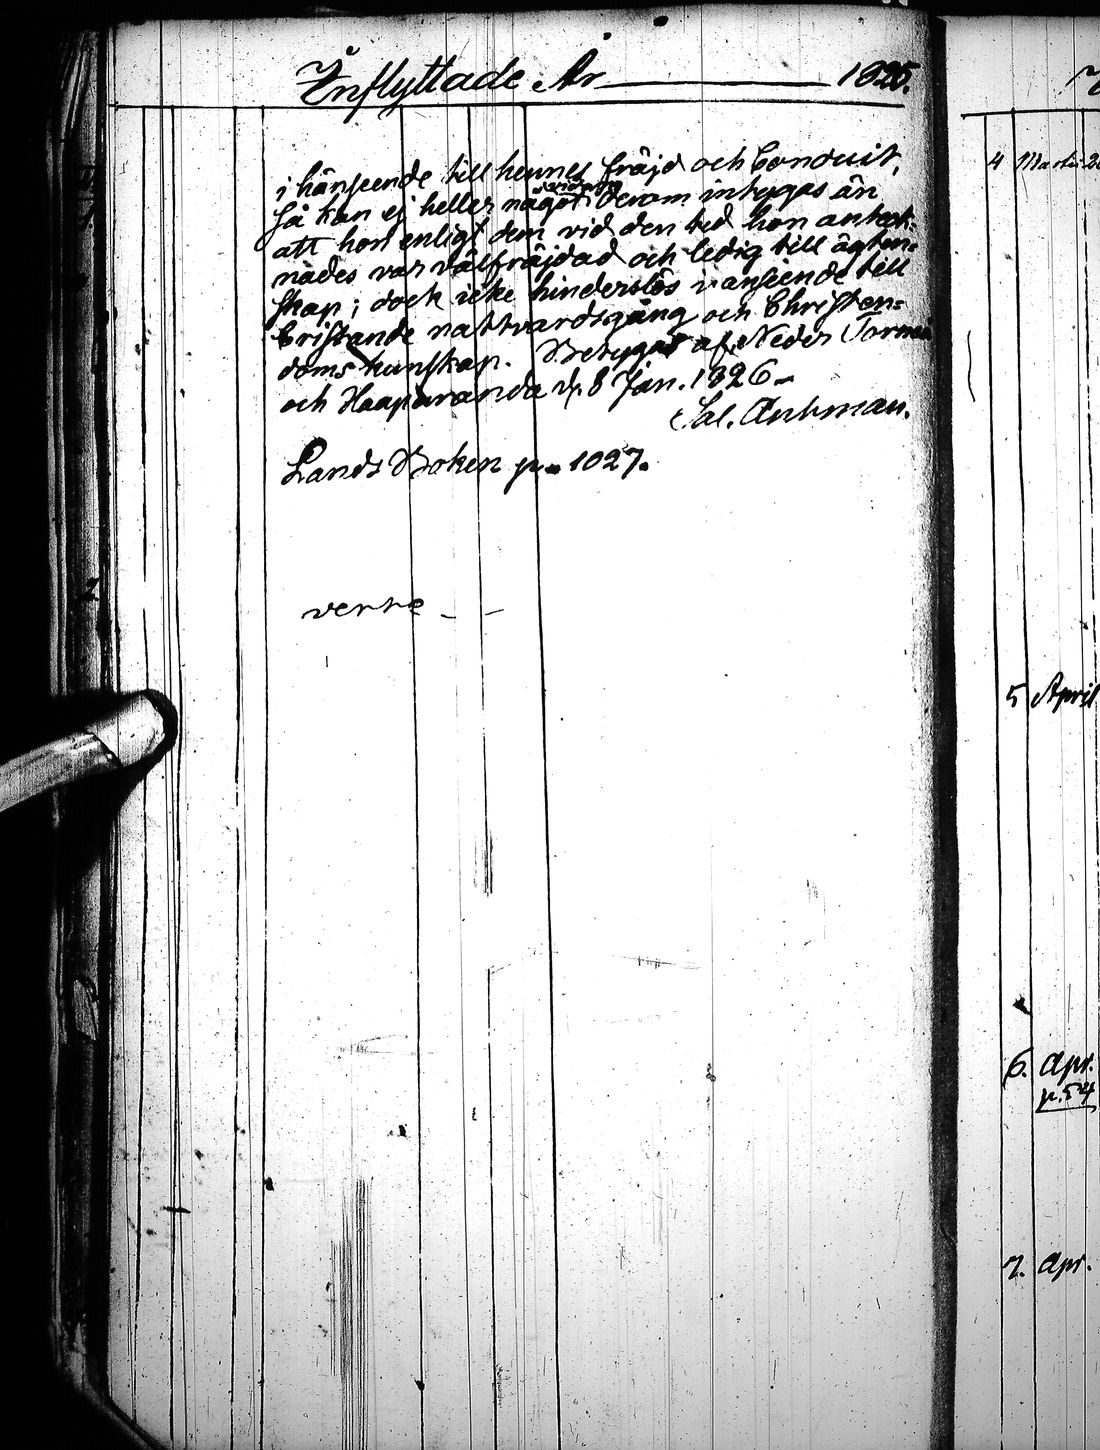 Inflyttade År 1825.
i hänseende till hennes fräjd och Conduit,
så kan ej heller något derom intygas än
att hon enligt dem vid den tid hon anteck=
nades var välfräjdad och ledig till ägten=
skap; dock icke hinderslös i anseende till
bristande nattvardsgång och Christen=
doms kunskap. Betygas af Neder Torneå
och Haaparanda d. 8 Jan. 1826
Sal.
Lands Boken p. 1027.
verte
4 Martii
5 April
6. Apr.
p. 54
7. Apr.